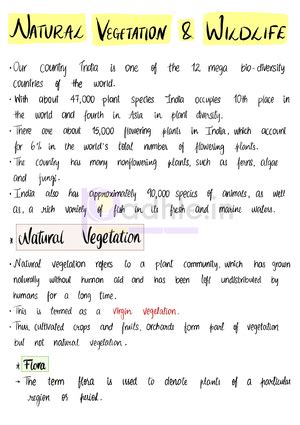 NATURAL VEGETATION & WILDLIFE
• Our country India is one of the 12 mega bio-diversity
countries of the world.
• With about 47,000 plant species India occupies 10th place in
the world and fourth in Asia in plant diversity.
• There are about 15,000 flowering plants in India, which account
for 6% in the world's total number of flowering plants.
• The country has many nonflowering plants, such as ferns, algae
and fungi.
• India also has approximately 90,000 species of animals, as well
as, a rich variety of fish in its fresh and marine waters.
* Natural Vegetation
• Natural vegetation refers to a plant community, which has grown
naturally without human aid and has been left undisturbed by
humans for a long time.
• This is termed as a virgin vegetation.
• Thus, cultivated crops and fruits, orchards form part of vegetation
but not natural vegetation.
* Flora
→ The term flora is used to denote plants of a particular
region or period.